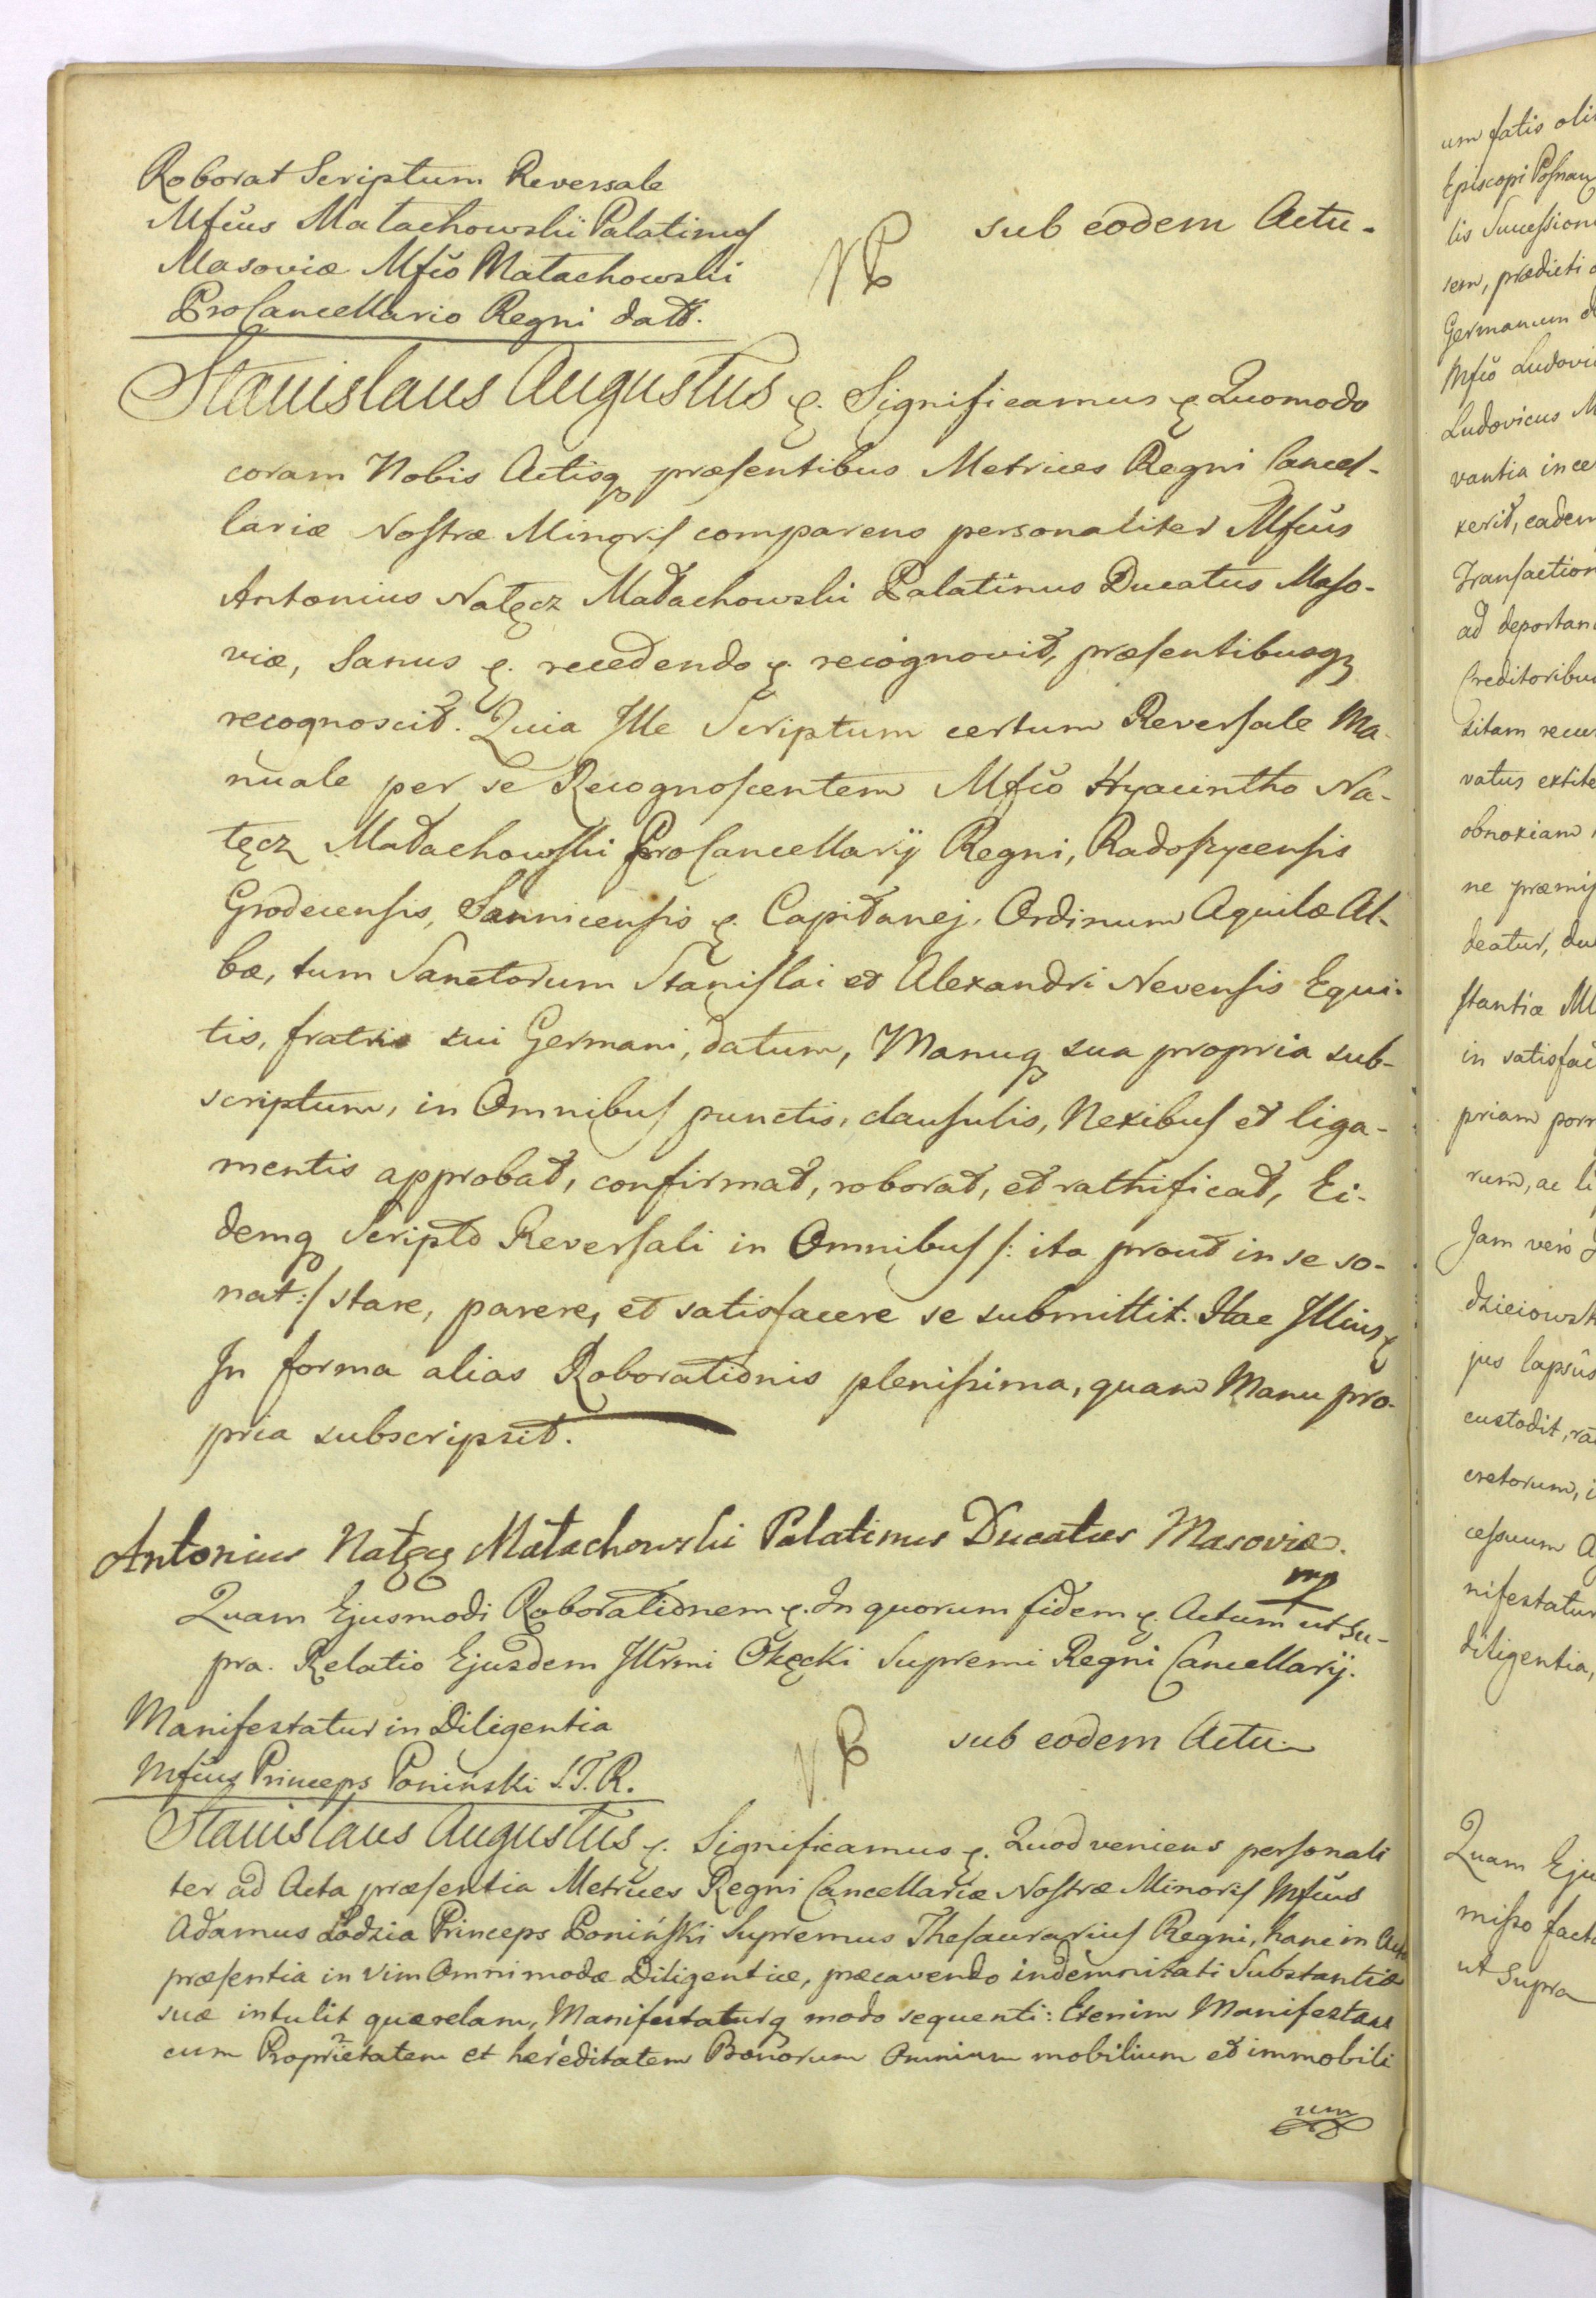 Roborat Scriptum Reversale
Mfcus Małachowski Palatinus
Masoviæ Mfco Małachowski
ProCancellario Regni datt.
sub eodem Actu.
Stanislaus Augustus &. Significamus &. Quomodo
coram Nobis Actisq præsentibus Metrices Regni Cancel-
lariæ Nostræ Minoris comparens personaliter Mfcus
Antonius Nałęcz Małachowski Palatinus Ducatus Maso-
viæ, Sanus &. recedendo &. recognovit, præsentibusq
recognoscit. Quia Ille Scriptum certum Reversale Ma-
nuale per se Recognoscentem Mfco Hyacintho Na-
łęcz Małachowski ProCancellarij Regni, Radoszycensis
Grodecensis, Sannicensis &. Capitanej, Ordinum Aquilæ Al-
bæ, tum Sanctorum Stanislai et Alexandri Nevensis Equi-
tis, fratris sui Germani, datum, Manuq sua propria sub-
scriptum, in Omnibus punctis, clausulis, Nexibus et liga-
mentis approbat, confirmat, roborat, et rathificat, Ei-
demq Scripto Reversali in Omnibus /: ita prout in se so-
nat :/ stare, parere, et satisfacere se submittit. Hac Illius &
In forma alias Roborationis plenissima, quam Manu pro-
pria subscripsit.
Antonius Nałęcz Małachowski Palatinus Ducatus Masoviæ.
mp
Quam Ejusmodi Roborationem &. In quorum fidem &. Actum ut su-
pra. Relatio Ejusdem Illrmi Okęcki Supremi Regni Cancellarij.
Manifestatur in Diligentia
Mfcus Princeps Poniński S.T.R.
sub eodem Actu.
Stanislaus Augustus &. Significamus &. Quod veniens personali
ter ad Acta præsentia Metrices Regni Cancellariæ Nostræ Minoris Mfcus
Adamus Lodzia Princeps Poniński Supremus Thesaurarius Regni, hanc in Acta
præsentia in vim Omnimodæ Diligentiæ, præcavendo indemnitati Substantiæ
suæ intulit querelam, Manifestaturq modo sequenti: Etenim Manifestans
cum Proprietatem et hereditatem Bonorum Omnium mobilium et immobili
um
um fatis oli
Episcopi Posnan
lis Succession
sem, prædicti
Germanum
Mfco Ludovi
Ludovicus M
vantia in ce
xerit, eadem
Transaction
ad deportan
Creditoribus
sitam recu
vatus extite
obnoxiam
ne præmis
deatur, du
stantiæ M
in satisfac
priam porr
rum, ac li
Jam vero
dzieiowsk
jus lapsus
custodit, ra
cretorum, i
cessuum
nifestatur
diligentia,
Quam Eju
misso facto
ut supra